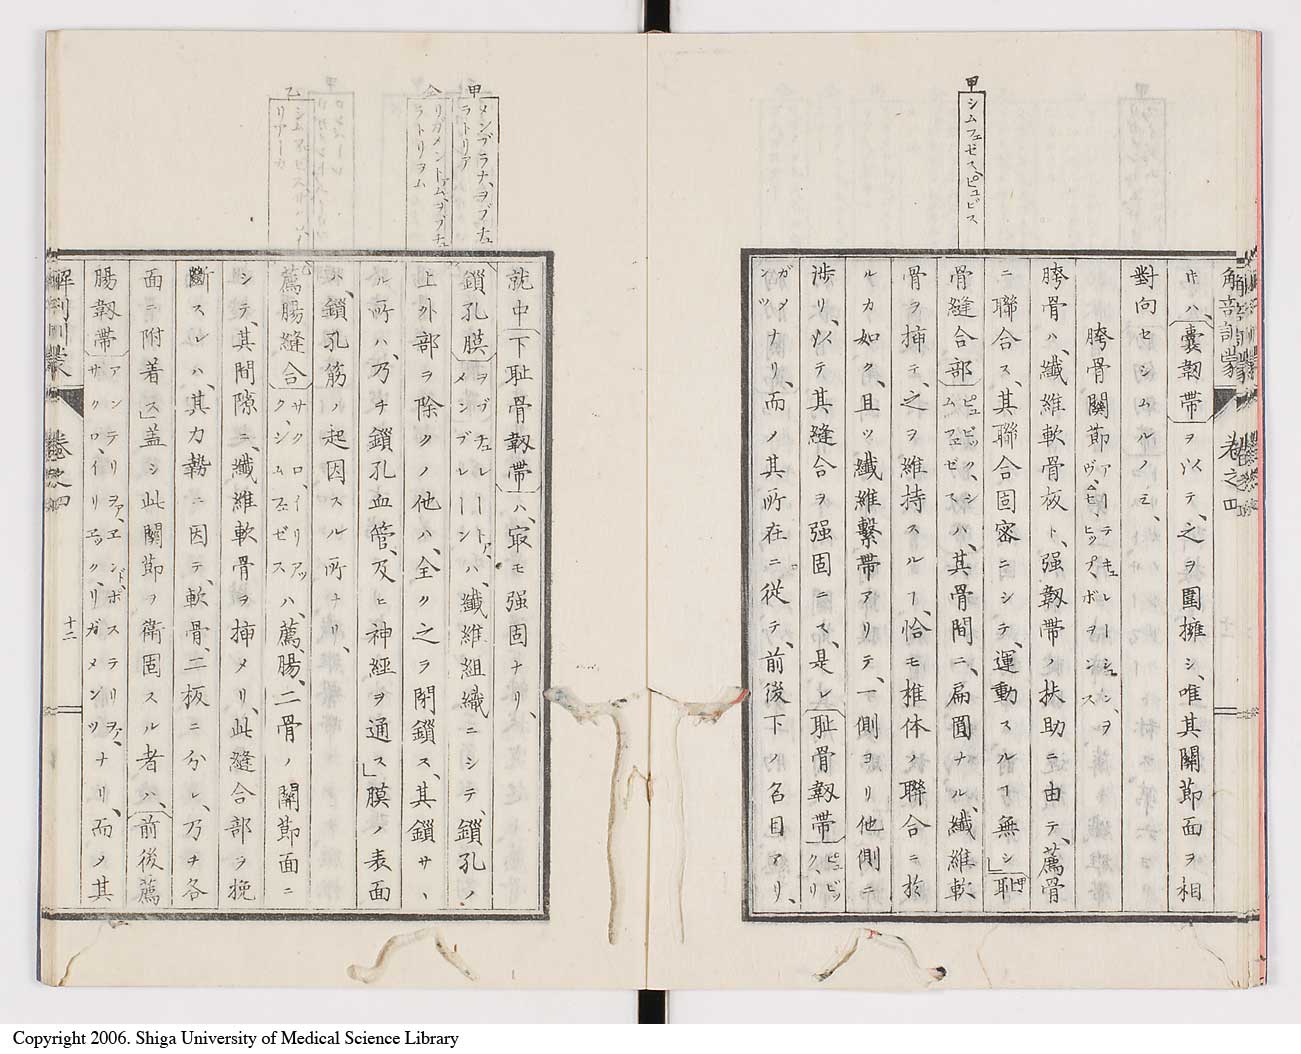 甲
シムフェゼス、ピュビス
解剖訓蒙 巻之四
ホハ、嚢韌帶ヲ以テ、之ヲ圍擁シ、唯其關節面ヲ相
對向セシムルノミ、
胯骨關節アーテキュレーション、ヲヴ、ゼ、ヒップ、ボヲンス
胯骨ハ、纖維軟骨板ト、强韌帶ノ扶助ニ由テ、薦骨
ニ聯合ス、其聯合固密ニシテ、運動スルヿ無シ」耻
骨縫合部ピュビック、シムフェゼスハ、其骨間ニ、扁圓ナル、纖維軟
骨ヲ挿テ、之ヲ維持スルヿ、恰モ椎体ノ聯合ニ於
ルカ如ク、且ツ纖維繫帶アリテ、一側ヨリ他側ニ
渉リ、以テ其縫合ヲ强固ニス、是レ耻骨韌帶ピュビック、リ
ガメンツナリ、而ノ其所在ニ從テ、前後下ノ名目アリ、
甲
メンブラナ、ヲブチュラトリア
仝
リガメントアム、ヲブチュラトリヲム
乙
就中下耻骨韌帶ハ、㝡モ强固ナリ、
鎖孔膜ヲブチュレートア、メンブレーンハ、纖維組織ニシテ、鎖孔ノ
上外部ヲ除クノ他ハ、全ク之ヲ閉鎖ス、其鎖サヽ
ル所ハ、乃チ鎖孔血管、及ヒ神經ヲ通ス」膜ノ表面
ハ、鎖孔筋ノ起因スル所ナリ、
薦腸縫合サクロ、イリアック、シムフェゼスハ、薦、腸、二骨ノ關節面ニ
シテ、其間隙ニ、纖維軟骨ヲ挿メリ、此縫合部ヲ挽
斷スレハ、其力勢ニ因テ、軟骨、二板ニ分レ、乃チ各
面ニ附着ス」蓋シ此關節ヲ衛固スル者ハ、前後薦
腸韌帶アンテリヲア、エンド、ポステリヲア、サクロ、イリエック、リガメンツナリ、而ノ其
解剖訓蒙 巻之四 十二
Copyright 2006. Shiga University of Medical Science Library